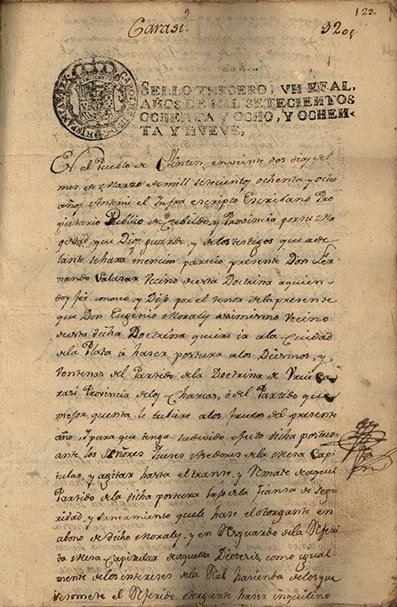 123.
Carasi.
520,,
SELLO TERCERO, VN REAL,
AÑOS DE MIL SETECIENTOS
OCHENTA Y OCHO, Y OCHEN-
TA Y NUEVE,
En el Pueblo de en veinte dos dias del
mes de Marzo de mill setecientos ochenta y ocho
años Antemi el Infra escripto Escribano Pro
pietario Publico de Cabildo y Provincia por su Ma
gestad que Dios guarde y de los testigos que ade
lante se hara mencion parecio presente Don Fer
nando Salazar Vecino de esta Doctrina a quien
doy feé conosco y Dijo por el tenor de la presente
que Don Eugenio Morales assimismo Vecino
de esta dicha Doctrina quiere ir a la Ciudad
de la Plata á haser postura a los Diesmos, y
Veintenas del Partido de la Doctrina de
rasi Provincia de los Charcas, ó del Partido que
mejor quenta le tubiere a los frutos del presente
año y para que tenga su devido efecto dicha postura
ante los Señores Jueses Hasedores de la Mesa Capi
tular, y agitar hasta el transe, y Remate de aquel
Partido de la dicha postura bajo de la fianza de segu
ridad, y saneamiento que le hase el otorgante en
abono de dicho Morales, y en Resguardo de la Referi
da Mesa Capitular de aquella Diocesis, como igual
mente de los intereses de la Real hacienda de los que
se somete el Referido otorgante haser inquilino